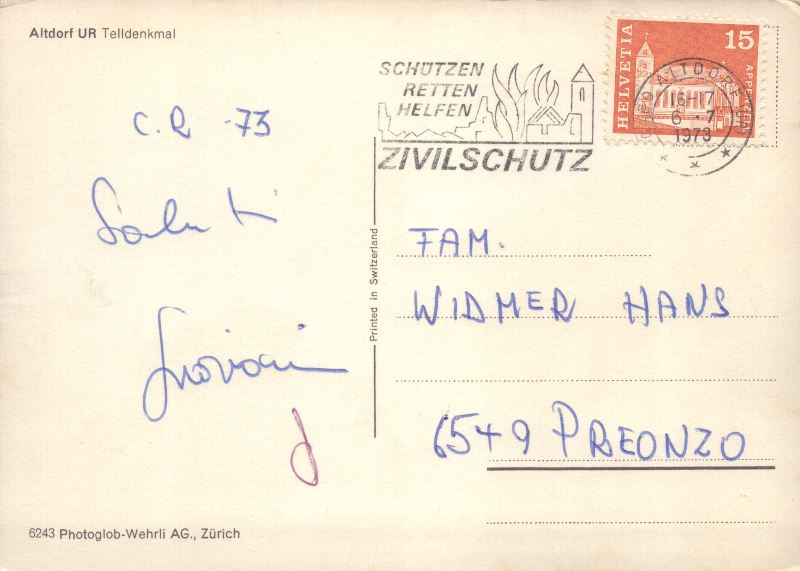 Altdorf UR Telldenkmal
C.R -73
Saluti
SCHÜTZEN
RETTEN
HELFEN
ZIVILSCHUTZ
HELVETIA
15
APPENZELL
ALTDORF
16-17
6.-7
1973
Printed in Switzerland
FAM.
WIDMER HANS
6549 PREONZO
6243 Photoglob-Wehrli AG., Zürich